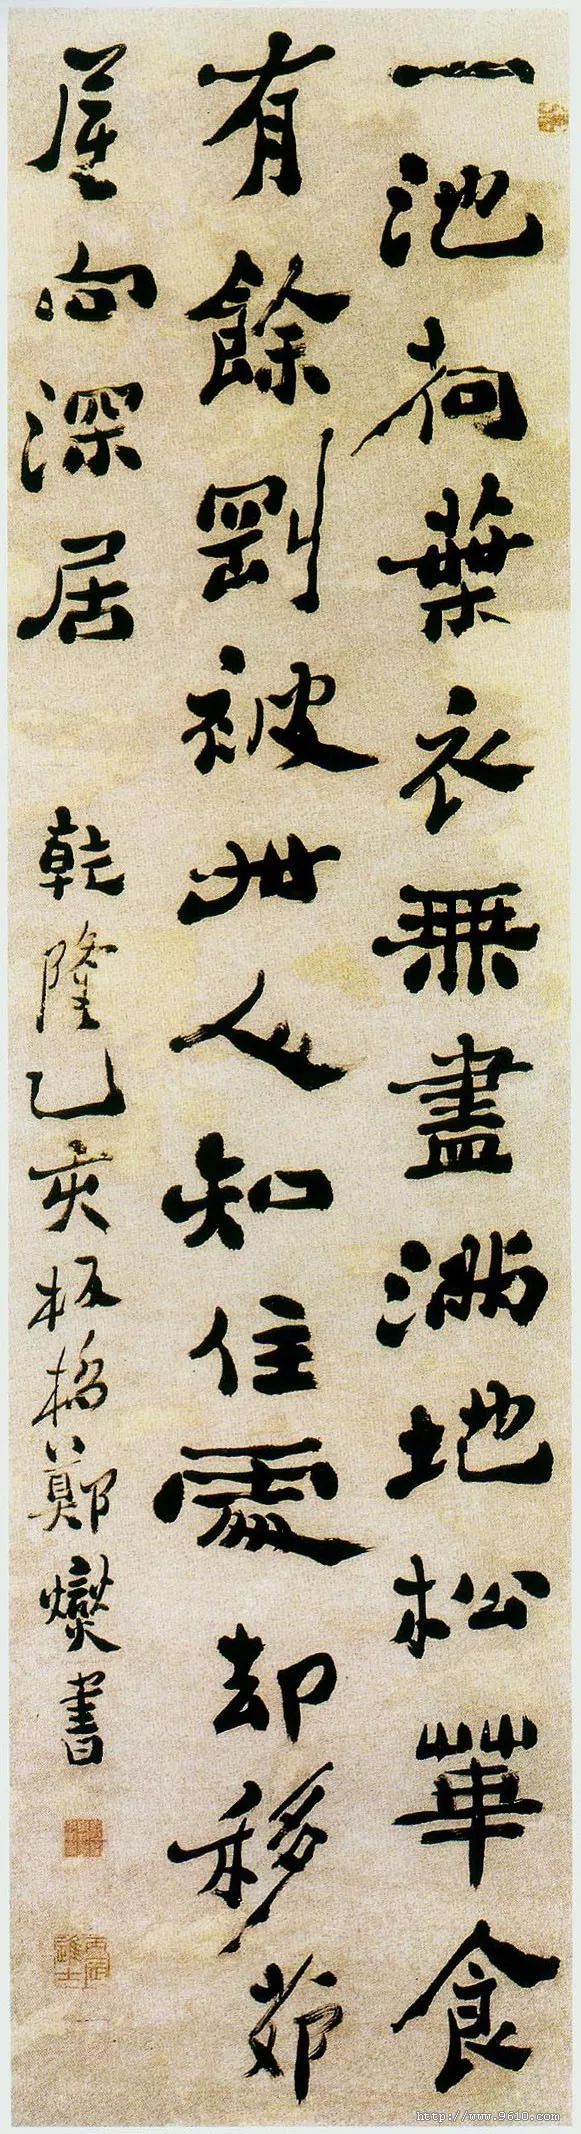 一池荷葉衣無盡滿地松華食
有餘剛被世人知住處却移茆
屋向深居
乾隆乙亥板橋鄭燮書
http://www.9610.com